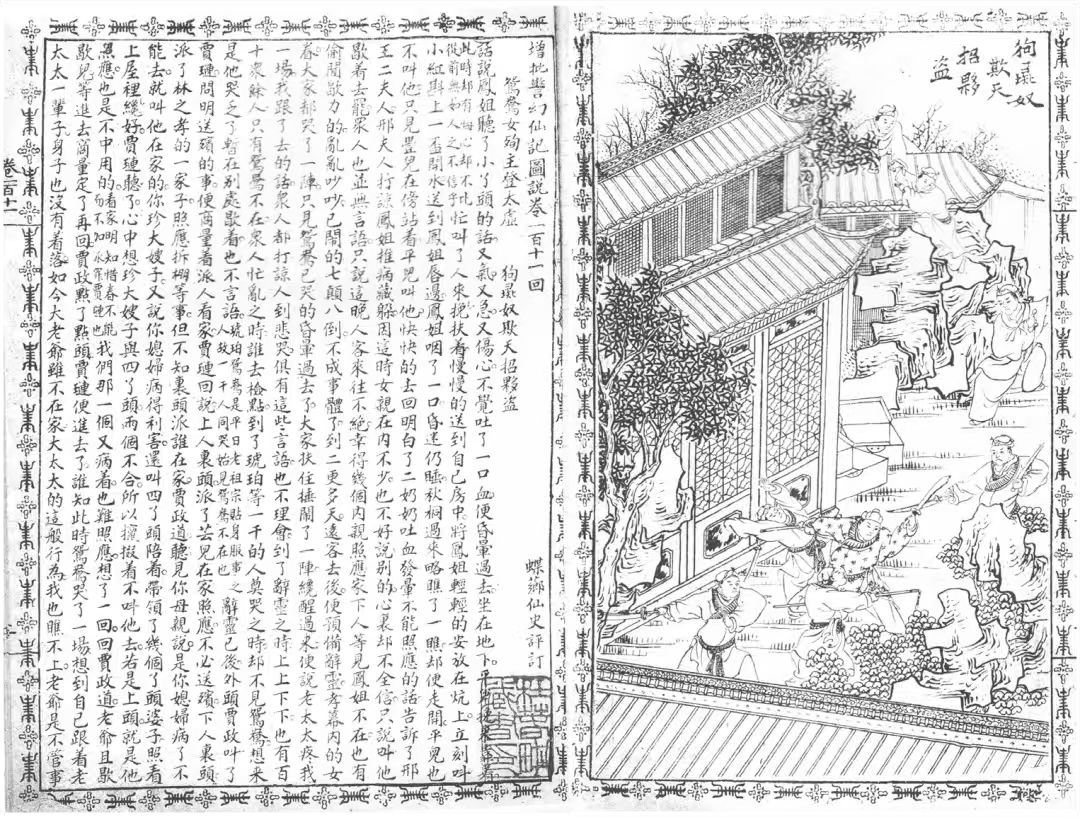 狗彘奴
欺天
招夥
盜
增批警幻仙記圖說卷一百十一回
鴛鴦女殉主登太虛 狗彘奴欺天招夥盜
蝶薌仙史評訂
話說鳳姐聽了小丫頭的話又氣又急又傷心不覺吐了一口血便昏暈過去坐在地下平兒急來靠着
此時却有悔心却不比從前無如人之不信了忙叫了人來攙扶着慢慢的送到自己房中將鳳姐輕輕的安放在炕上立刻叫
小紅斟上一盃開水送到鳳姐唇邊鳳姐咽了一口昏迷仍睡秋桐過來略瞧了一瞧却便走開平兒也
不叫他只見豐兒在傍站着平兒叫他快快的去回明白了二奶奶吐血發暈不能照應的話告訴了邢
王二夫人邢夫人打諒鳳姐推病藏躲因這時女親在內不少也不好說別的心裏却不全信只說叫他
歇着去罷眾人也並無言語只說這晚人客來往不絕幸得幾個內親照應家下人等見鳳姐不在也有
偷閒歇力的亂亂吵吵已鬧的七顛八倒不成事體了到二更多天遠客去後便預備辭靈孝幕內的女
眷大家都哭了一陣只見鴛鴦已哭的昏暈過去了大家扶住捶鬧了一陣纔醒過來便說老太太疼我
一場我跟了去的話眾人都打諒人到悲哭俱有這些言語也不理會到了辭靈之時上上下下也有百
十眾餘人只有鴛鴦不在眾人忙亂之時誰去檢點到了琥珀等一干的人奠哭之時却不見鴛鴦想來
是他哭乏了暫在別處歇着也不言語琥珀鴛鴦是平日老祖宗貼身服事之人故一干人同哭始見鴛鴦不在也辭靈已後外頭賈政叫了
賈璉問明送殯的事便商量着派人看家賈璉回說上人裏頭派了芸兒在家照應不必送殯下人裏頭
派了林之孝的一家子照應拆棚等事但不知裏頭派誰在家賈政道聽見你母親說是你媳婦病了不
能去就叫他在家的你珍大嫂子又說你媳婦病得利害還叫四丫頭陪着帶領了幾個丫頭婆子照看
上屋裡纔好賈璉聽了心中想珍大嫂子與四丫頭兩個不合所以攛掇着不叫他去若是上頭就是他
照應也是不中用的我們那一個又病着也難照應想了一回回賈政道老爺且歇
歇兒等進去商量定了再回賈政點了點頭賈璉便進去了誰知此時鴛鴦哭了一場想到自己跟着老
太太一輩子身子也沒有着落如今大老爺雖不在家大太太的這般行為我也瞧不上老爺是不管事
卷一百十一